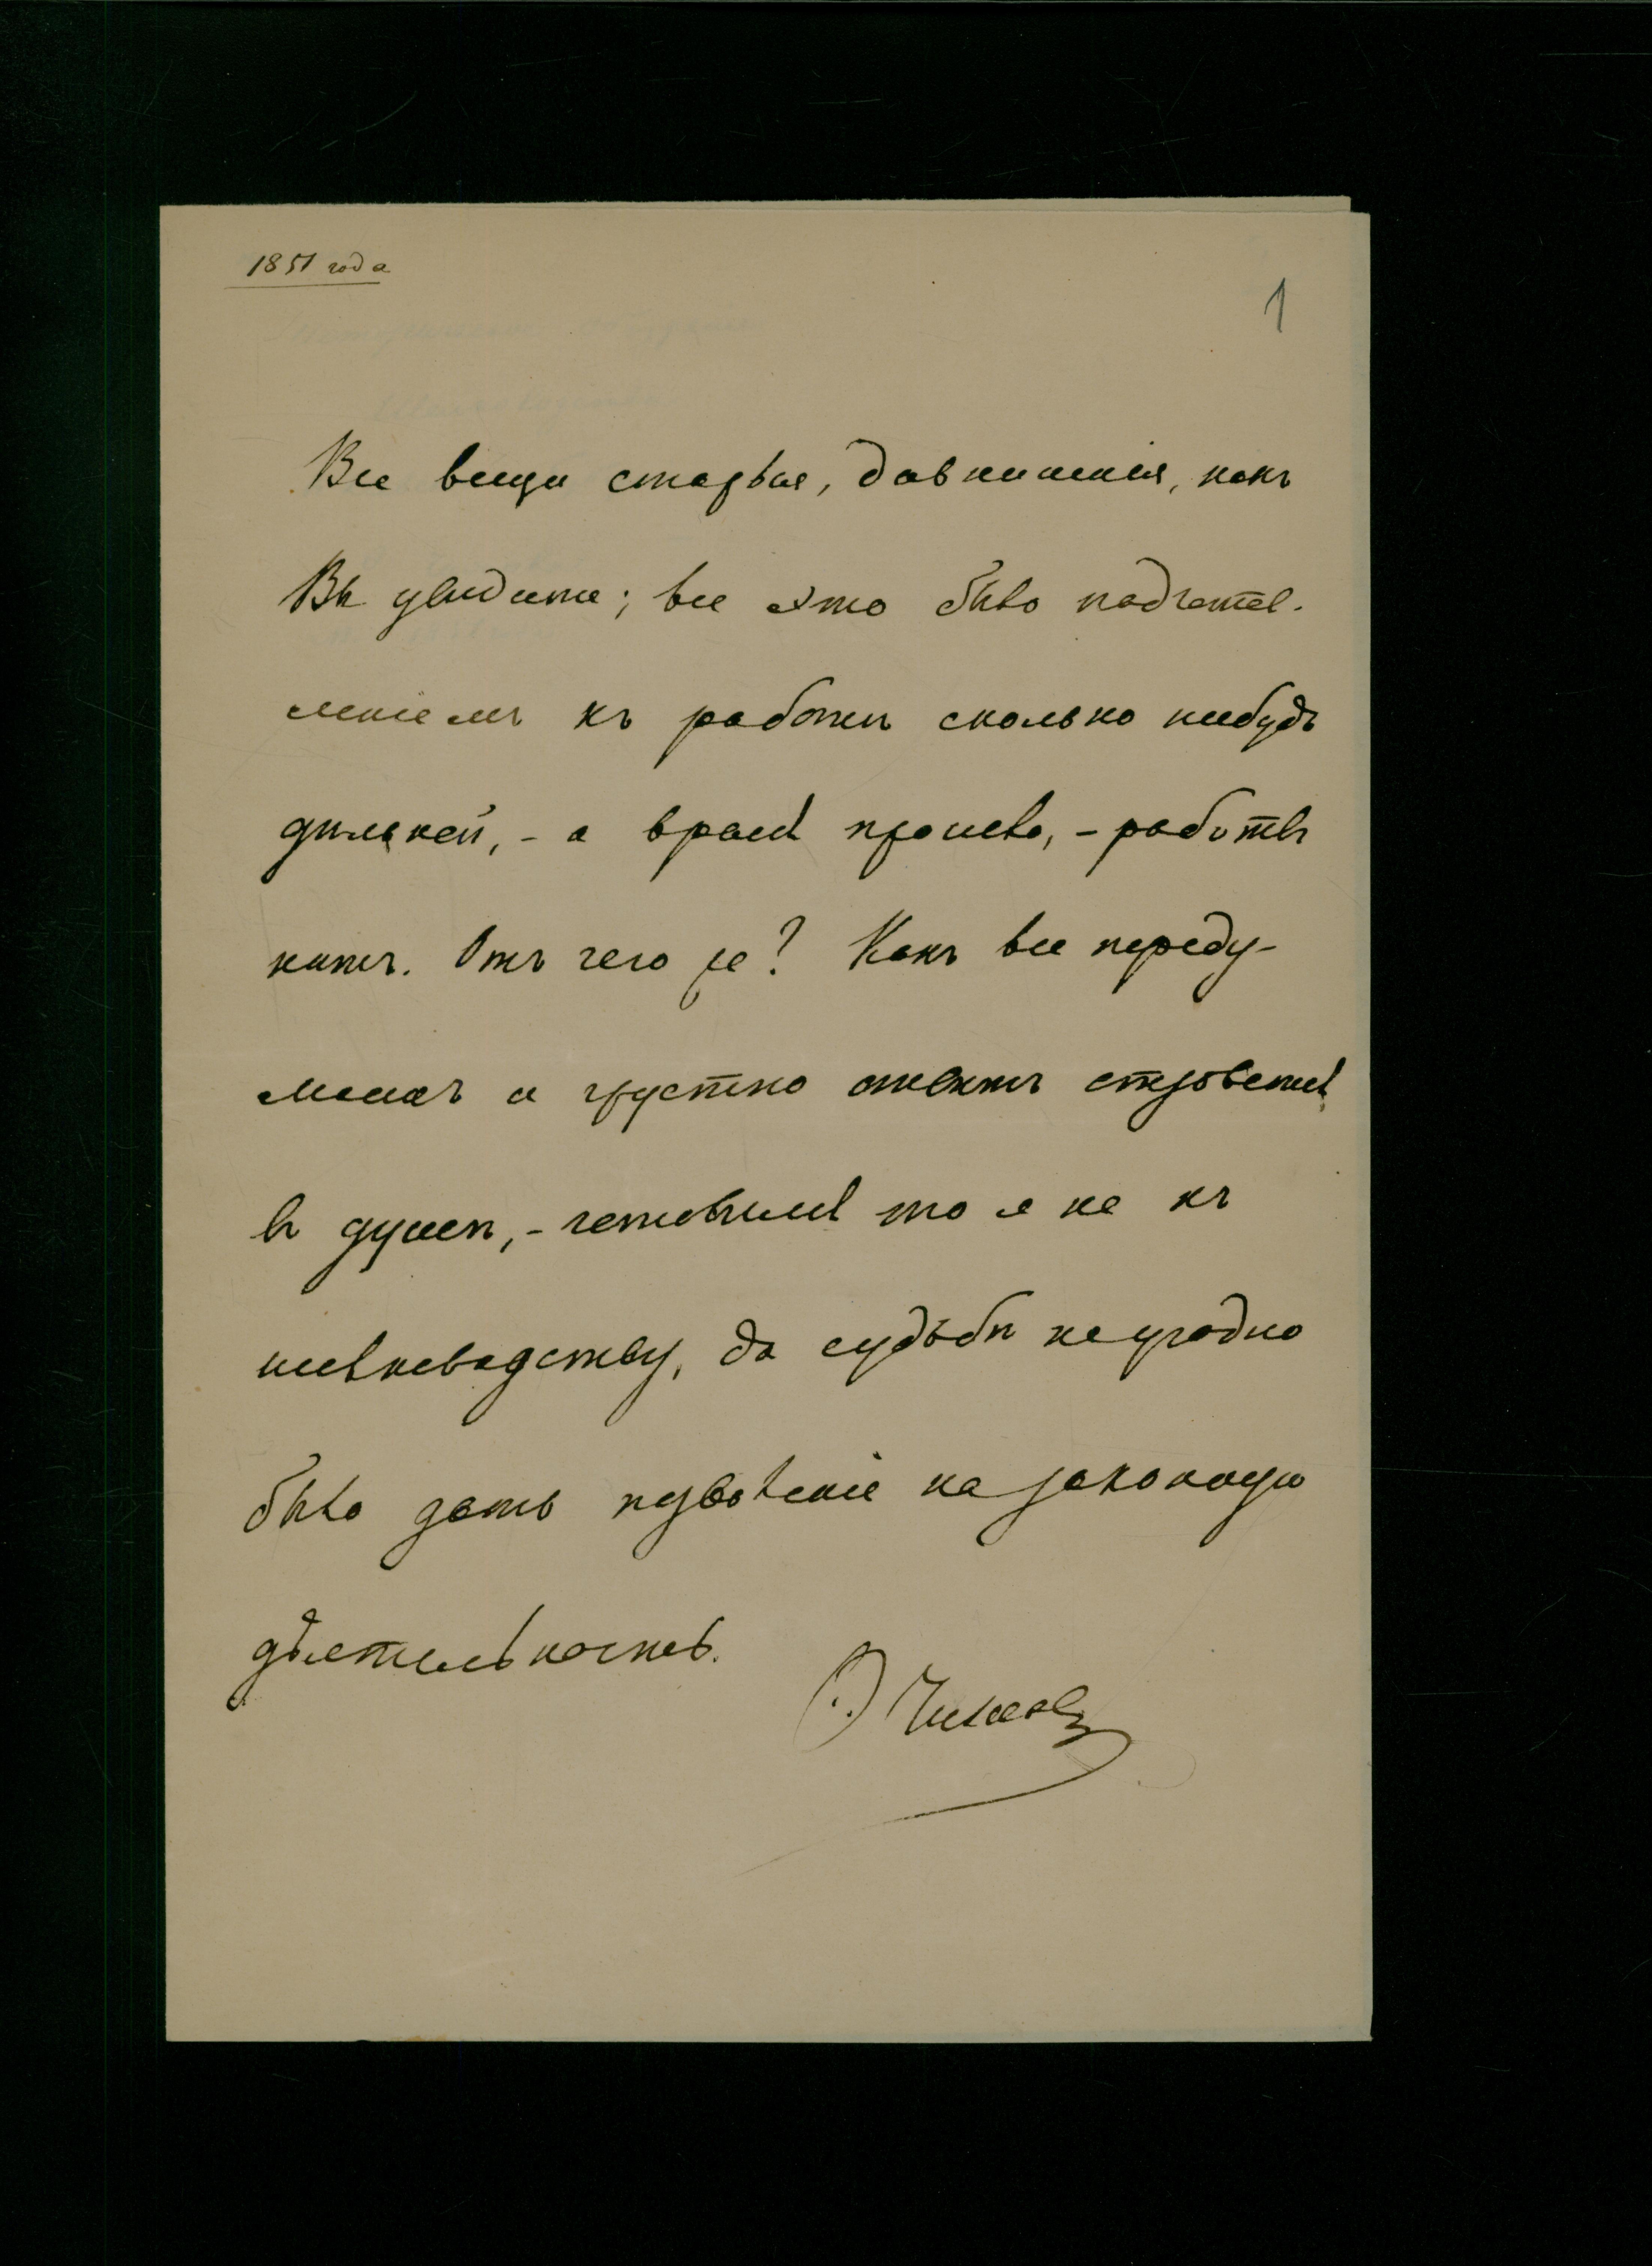 1851 года
1
Все вещи старыя, давнишнія, какъ
Вы увидите; все это было подготов-
леніемъ къ работѣ сколько нибудь
дѣльной, - а время прошло, - работы
нѣтъ. Отъ чего же? Какъ все переду-
маешь и грустно
въ душѣ, - готовился то я не къ
шелководству, да судьбѣ неугодно
было дать позволеніе на законную
дѣятельность.
Ѳ Чижовъ